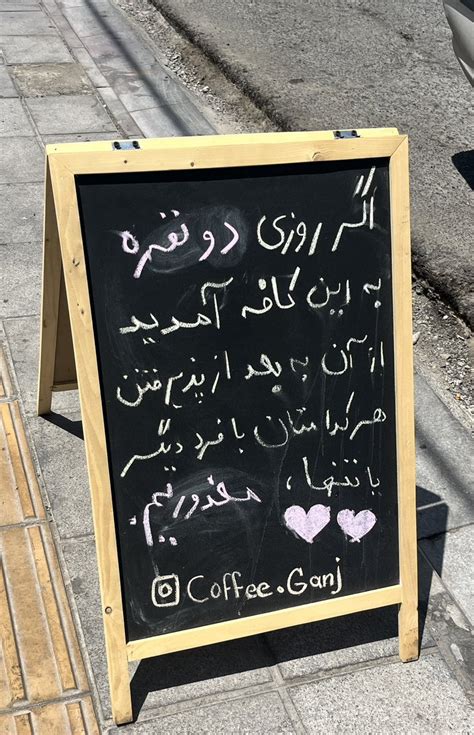 اگر روزی دو نفره
به این کافه آمدید
از آن به بعد از پذیرفتن
هر کدامتان با فرد دیگر
یا تنها، معذوریم.
Coffee.Ganj